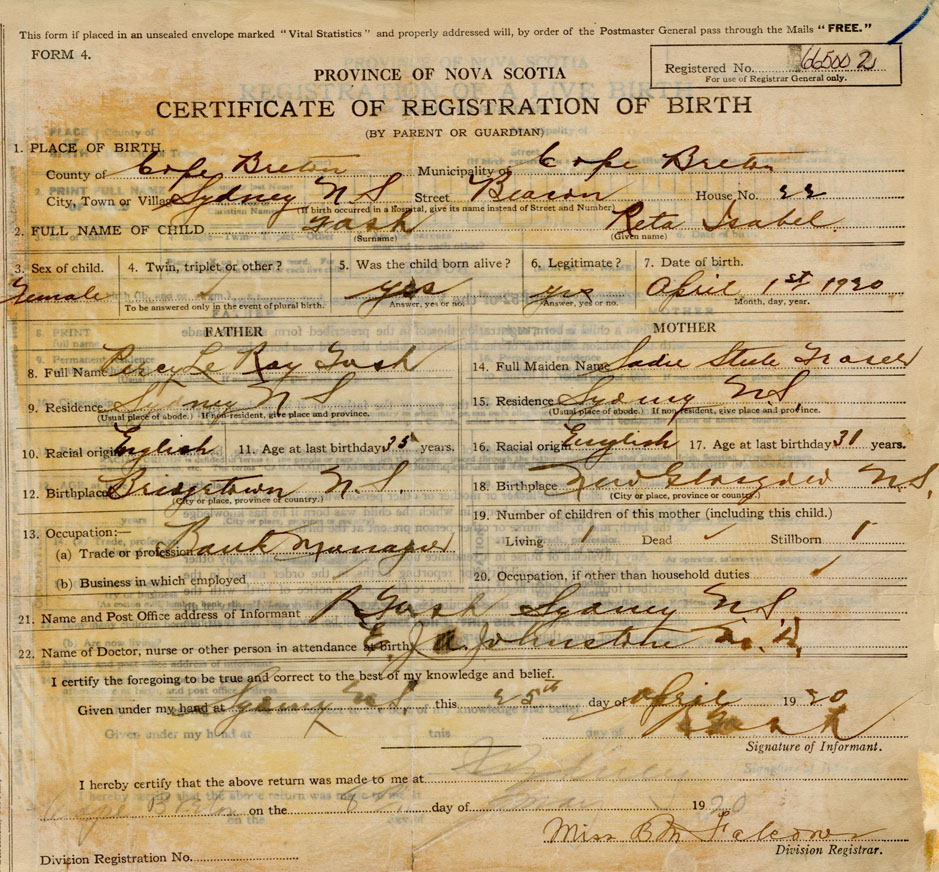 This form if placed in an unsealed envelope marked "Vital Statistics" and properly addressed will, by order of the Postmaster General pass through the Mails "FREE."
FORM 4.
Registered No. 665002
For use of Registrar General only.
PROVINCE OF NOVA SCOTIA
CERTIFICATE OF REGISTRATION OF BIRTH
(BY PARENT OR GUARDIAN)
1. PLACE OF BIRTH.
County of Cape Breton Municipality of Cape Breton
City, Town or Village Sydney N S Street Beacon House No. 22
(If birth occurred in a hospital, give its name instead of Street and Number)
2. FULL NAME OF CHILD Gash Reta Isabel
(Surname) (Given name)
3. Sex of child. 4. Twin, triplet or other? 5. Was the child born alive? 6. Legitimate? 7. Date of birth.
Female yes yes April 1st 1920
To be answered only in the event of plural birth. Answer, yes or no. Answer, yes or no. Month, day, year.
FATHER MOTHER
8. Full Name Percy Le Roy Gash
14. Full Maiden Name Sadie Fraser
9. Residence Sydney N S
15. Residence Sydney N.S.
(Usual place of abode.) If non-resident, give place and province.
(Usual place of abode.) If non resident, give place and province.
10. Racial origin English 11. Age at last birthday 35 years.
16. Racial origin English 17. Age at last birthday 31 years.
12. Birthplace Bridgetown N.S.
18. Birthplace New Glasgow N.S.
(City or place, province or country.)
(City or place, province or country.)
19. Number of children of this mother (including this child.)
13. Occupation:—
(a) Trade or profession Bank Manager
Living 1 Dead Stillborn 1
(b) Business in which employed
20. Occupation, if other than household duties
21. Name and Post Office address of Informant P Gash Sydney N S
22. Name of Doctor, nurse or other person in attendance at Birth E. J. Johnstone M.D.
I certify the foregoing to be true and correct to the best of my knowledge and belief.
Given under my hand at Sydney N.S. this 25th day of April 1920
P Gash
Signature of Informant.
I hereby certify that the above return was made to me at Sydney
on the day of 1920
Miss B M Falconer
Division Registrar.
Division Registration No.